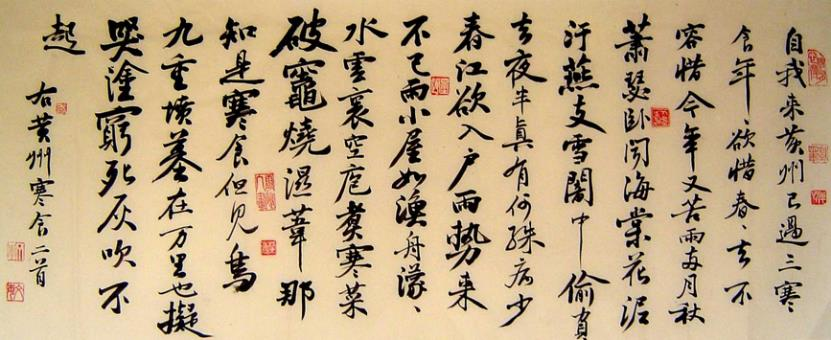 自我来黄州已過三寒
食年〻欲惜春〻去不
容惜今年又苦雨两月秋
蕭瑟卧聞海棠花泥
汙燕支雪闇中偷負
去夜半真有何殊病少
春江欲入户雨勢来
不已雨小屋如漁舟濛〻
水雲裏空庖煮寒菜
破竈燒濕葦那
知是寒食但見烏
九重墳墓在万里也擬
哭塗窮死灰吹不
起
右黄州寒食二首